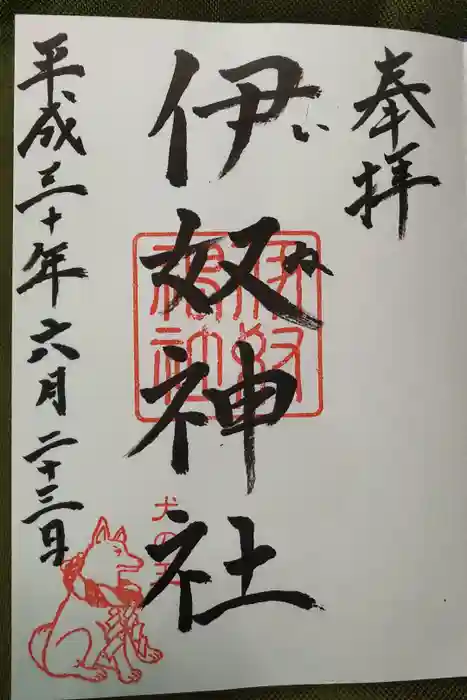 奉拝
伊奴神社
いぬ
伊奴神社
犬の王
平成三十年六月二十三日